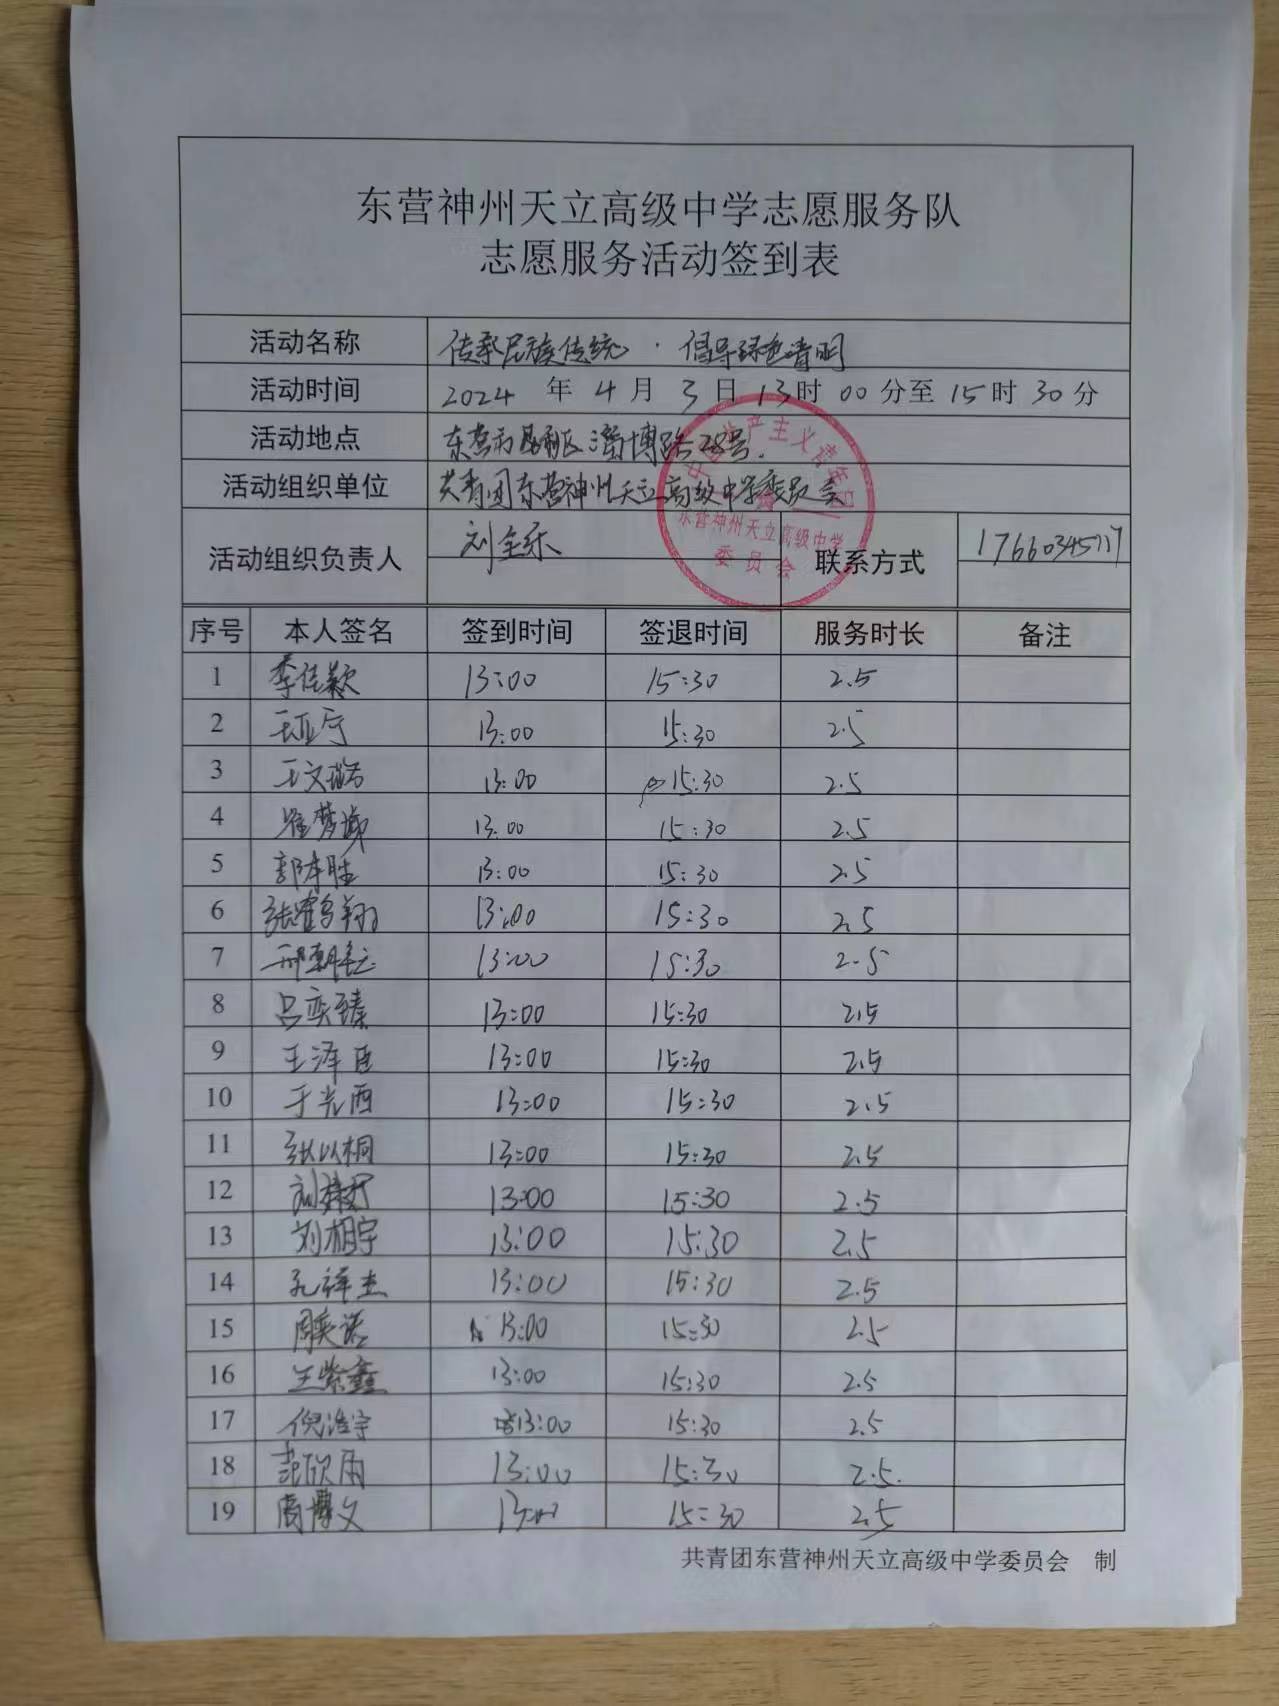 东营神州天立高级中学志愿服务队
志愿服务活动签到表
活动名称 传承民族传统·倡导绿色清明
活动时间 2024 年 4 月 3 日 13时 00 分至 15 时 30 分
活动地点 东营市垦利区淄博路28号.
活动组织单位 共青团东营神州天立高级中学委员会
中国共产主义青年团
东营神州天立高级中学
委员会
活动组织负责人 刘全乐 联系方式 17660345717
序号 本人签名 签到时间 签退时间 服务时长 备注
1 季佳颖 13:00 15:30 2.5
2 王亚宁 13:00 15:30 2.5
3 王文 13:00 15:30 2.5
4 崔梦 13:00 15:30 2.5
5 郭本胜 13:00 15:30 2.5
6 张鹤翔 13:00 15:30 2.5
7 邢朝 13:00 15:30 2.5
8 吕奕臻 13:00 15:30 2.5
9 王泽臣 13:00 15:30 2.5
10 于光西 13:00 15:30 2.5
11 张以桐 13:00 15:30 2.5
12 刘 13:00 15:30 2.5
13 刘相宇 13:00 15:30 2.5
14 孔祥杰 13:00 15:30 2.5
15 周奕诺 13:00 15:30 2.5
16 王紫鑫 13:00 15:30 2.5
17 倪浩宇 13:00 15:30 2.5
18 范欣雨 13:00 15:30 2.5.
19 周博文 13:00 15:30 2.5
共青团东营神州天立高级中学委员会 制